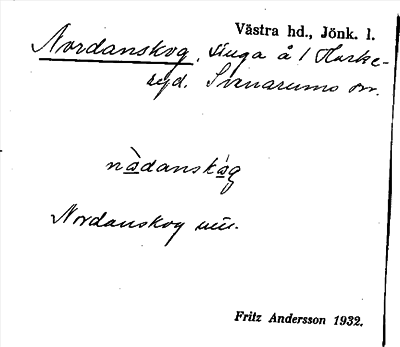 Västra hd., Jönk. l.
Nordanskog, stuga å / Harke-
ryd. Svenarums sn.
nàdanskág
Nordanskog
Fritz Andersson 1932.